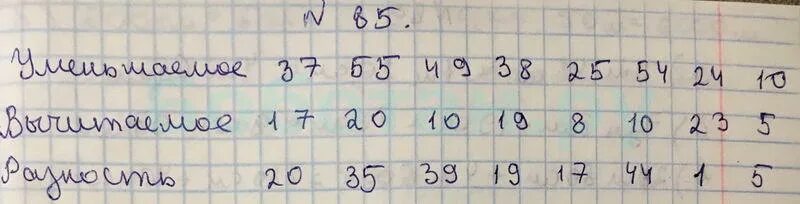 N 85.
Уменьшаемое 37 55 49 38 25 54 24 10
Вычитаемое 17 20 10 19 8 10 23 5
Разность 20 35 39 19 17 44 1 5